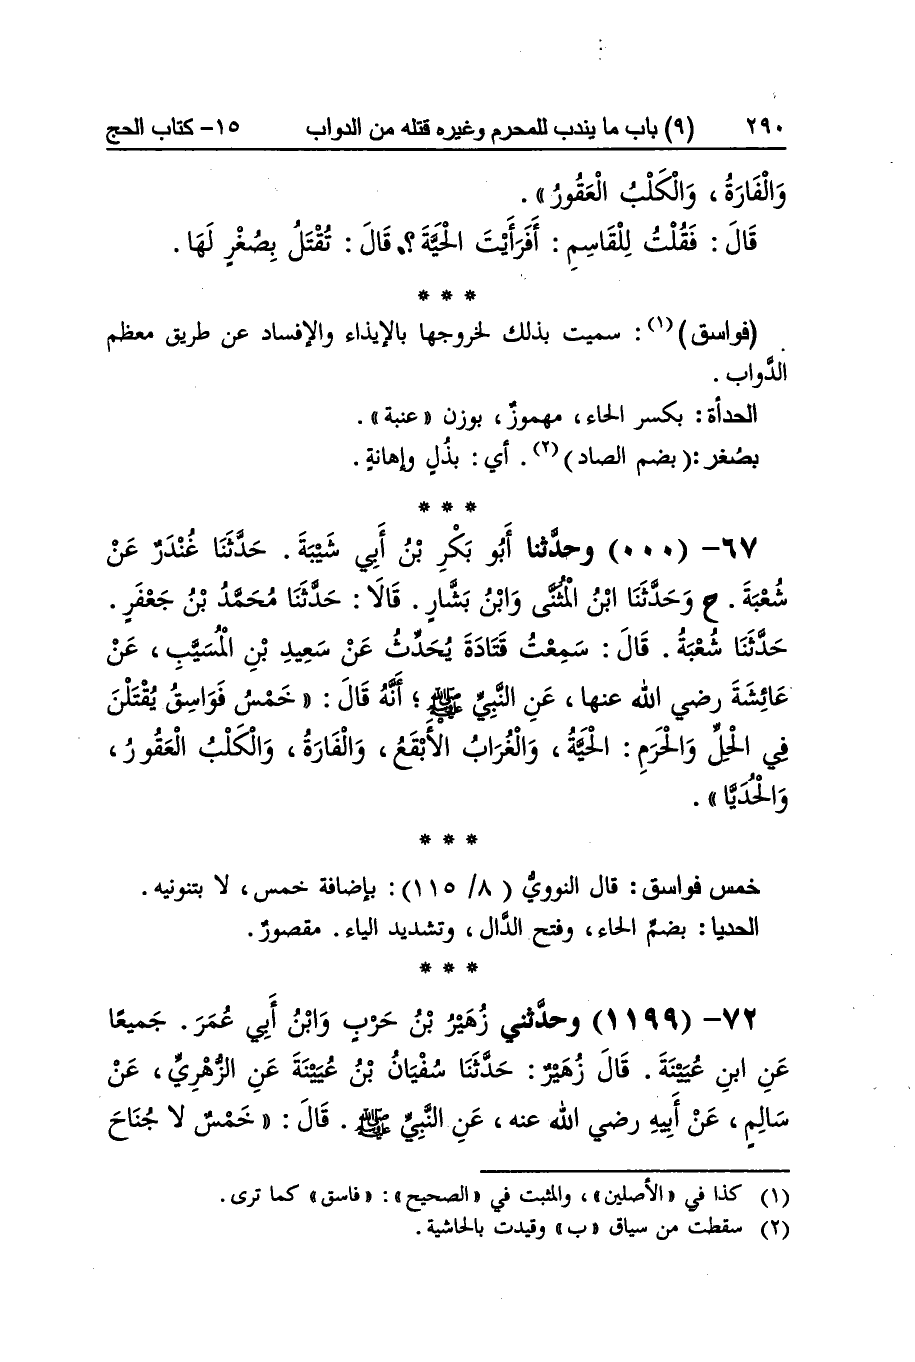 ٢٩٠ (٩) باب ما يندب للمحرم وغيره قتله من الدواب ١٥- كتاب الحج
وَالْفَارَةُ، وَالْكَلْبُ الْعَقُورُ».
قَالَ: فَقُلْتُ لِلْقَاسِمِ: أَفَرَأَيْتَ الْحَيَّةَ؟ قَالَ: تُقْتَلُ بِصُغْرٍ لَهَا.
* * *
(فواسق)(١): سميت بذلك لخروجها بالإيذاء والإفساد عن طريق معظم
الدَّواب.
الحدأة: بكسر الحاء، مهموزٌ، بوزن «عنبة».
بصُغر:(بضم الصاد)(٢). أي: بذُلٍ وإهانةٍ.
* * *
٦٧- (٠٠٠) وحدَّثنا أَبُو بَكْرِ بْنُ أَبِي شَيْبَةَ. حَدَّثَنَا غُنْدَرٌ عَنْ
شُعْبَةَ. ح وَحَدَّثَنَا ابْنُ الْمُثَنَّى وَابْنُ بَشَّارٍ. قَالَا: حَدَّثَنَا مُحَمَّدُ بْنُ جَعْفَرٍ.
حَدَّثَنَا شُعْبَةُ. قَالَ: سَمِعْتُ قَتَادَةَ يُحَدِّثُ عَنْ سَعِيدِ بْنِ الْمُسَيَّبِ، عَنْ
عَائِشَةَ رضي الله عنها، عَنِ النَّبِيِّ ﷺ؛ أَنَّهُ قَالَ: «خَمْسُ فَوَاسِقُ يُقْتَلْنَ
فِي الْحِلِّ وَالْحَرَمِ: الْحَيَّةُ، وَالْغُرَابُ الْأَبْقَعُ، وَالْفَارَةُ، وَالْكَلْبُ الْعَقُورُ،
وَالْحُدَيَّا».
* * *
خمس فواسق: قال النوويُّ (٨/ ١١٥): بإضافة خمس، لا بتنونيه.
الحديا: بضمِّ الحاء، وفتح الدَّال، وتشديد الياء. مقصورٌ.
* * *
٧٢- (١١٩٩) وحدَّثني زُهَيْرُ بْنُ حَرْبٍ وَابْنُ أَبِي عُمَرَ. جَمِيعًا
عَنِ ابنِ عُيَيْنَةَ. قَالَ زُهَيْرٌ: حَدَّثَنَا سُفْيَانُ بْنُ عُيَيْنَةَ عَنِ الزُّهْرِيِّ، عَنْ
سَالِمٍ، عَنْ أَبِيهِ رضي الله عنه، عَنِ النَّبِيِّ ﷺ. قَالَ: «خَمْسٌ لا جُنَاحَ
(١) كذا في «الأصلين»، والمثبت في «الصحيح»: «فاسق» كما ترى.
(٢) سقطت من سياق «ب» وقيدت بالحاشية.